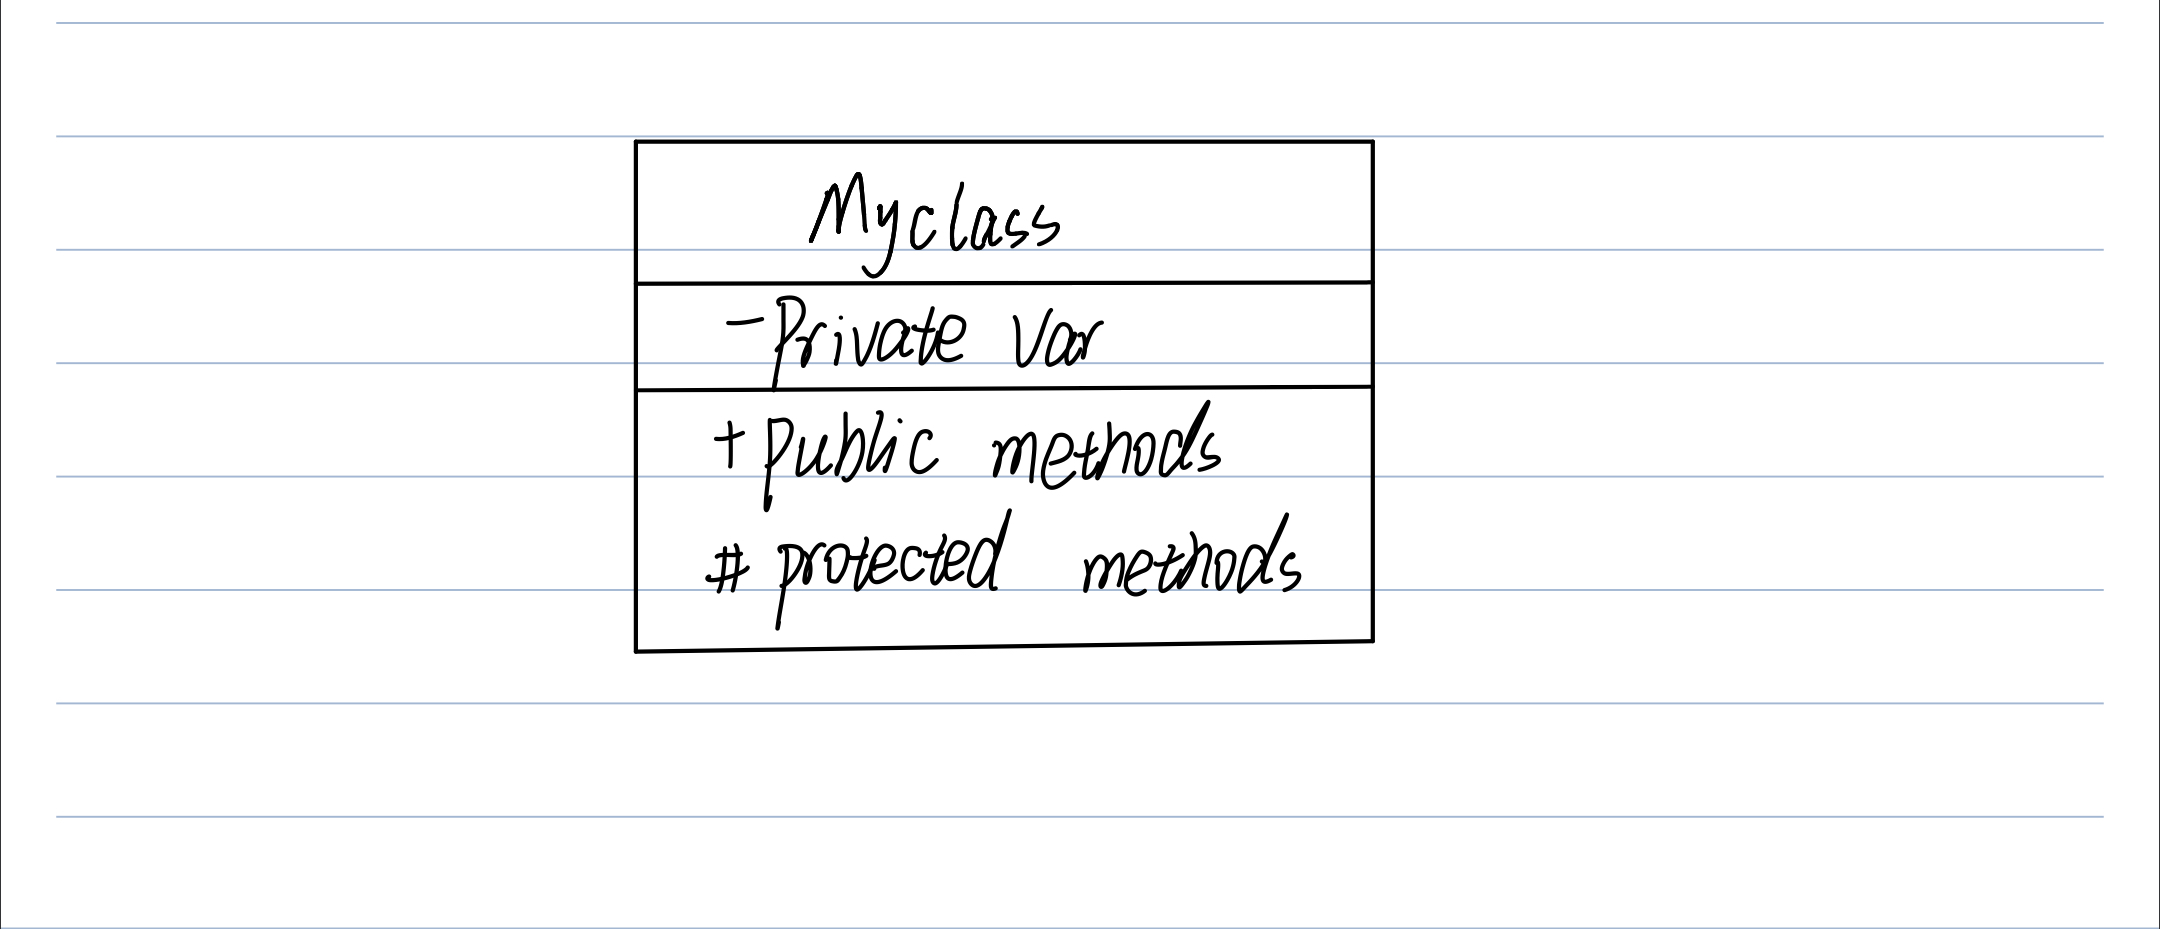 Myclass
-Private Var
+ Public methods
# protected methods